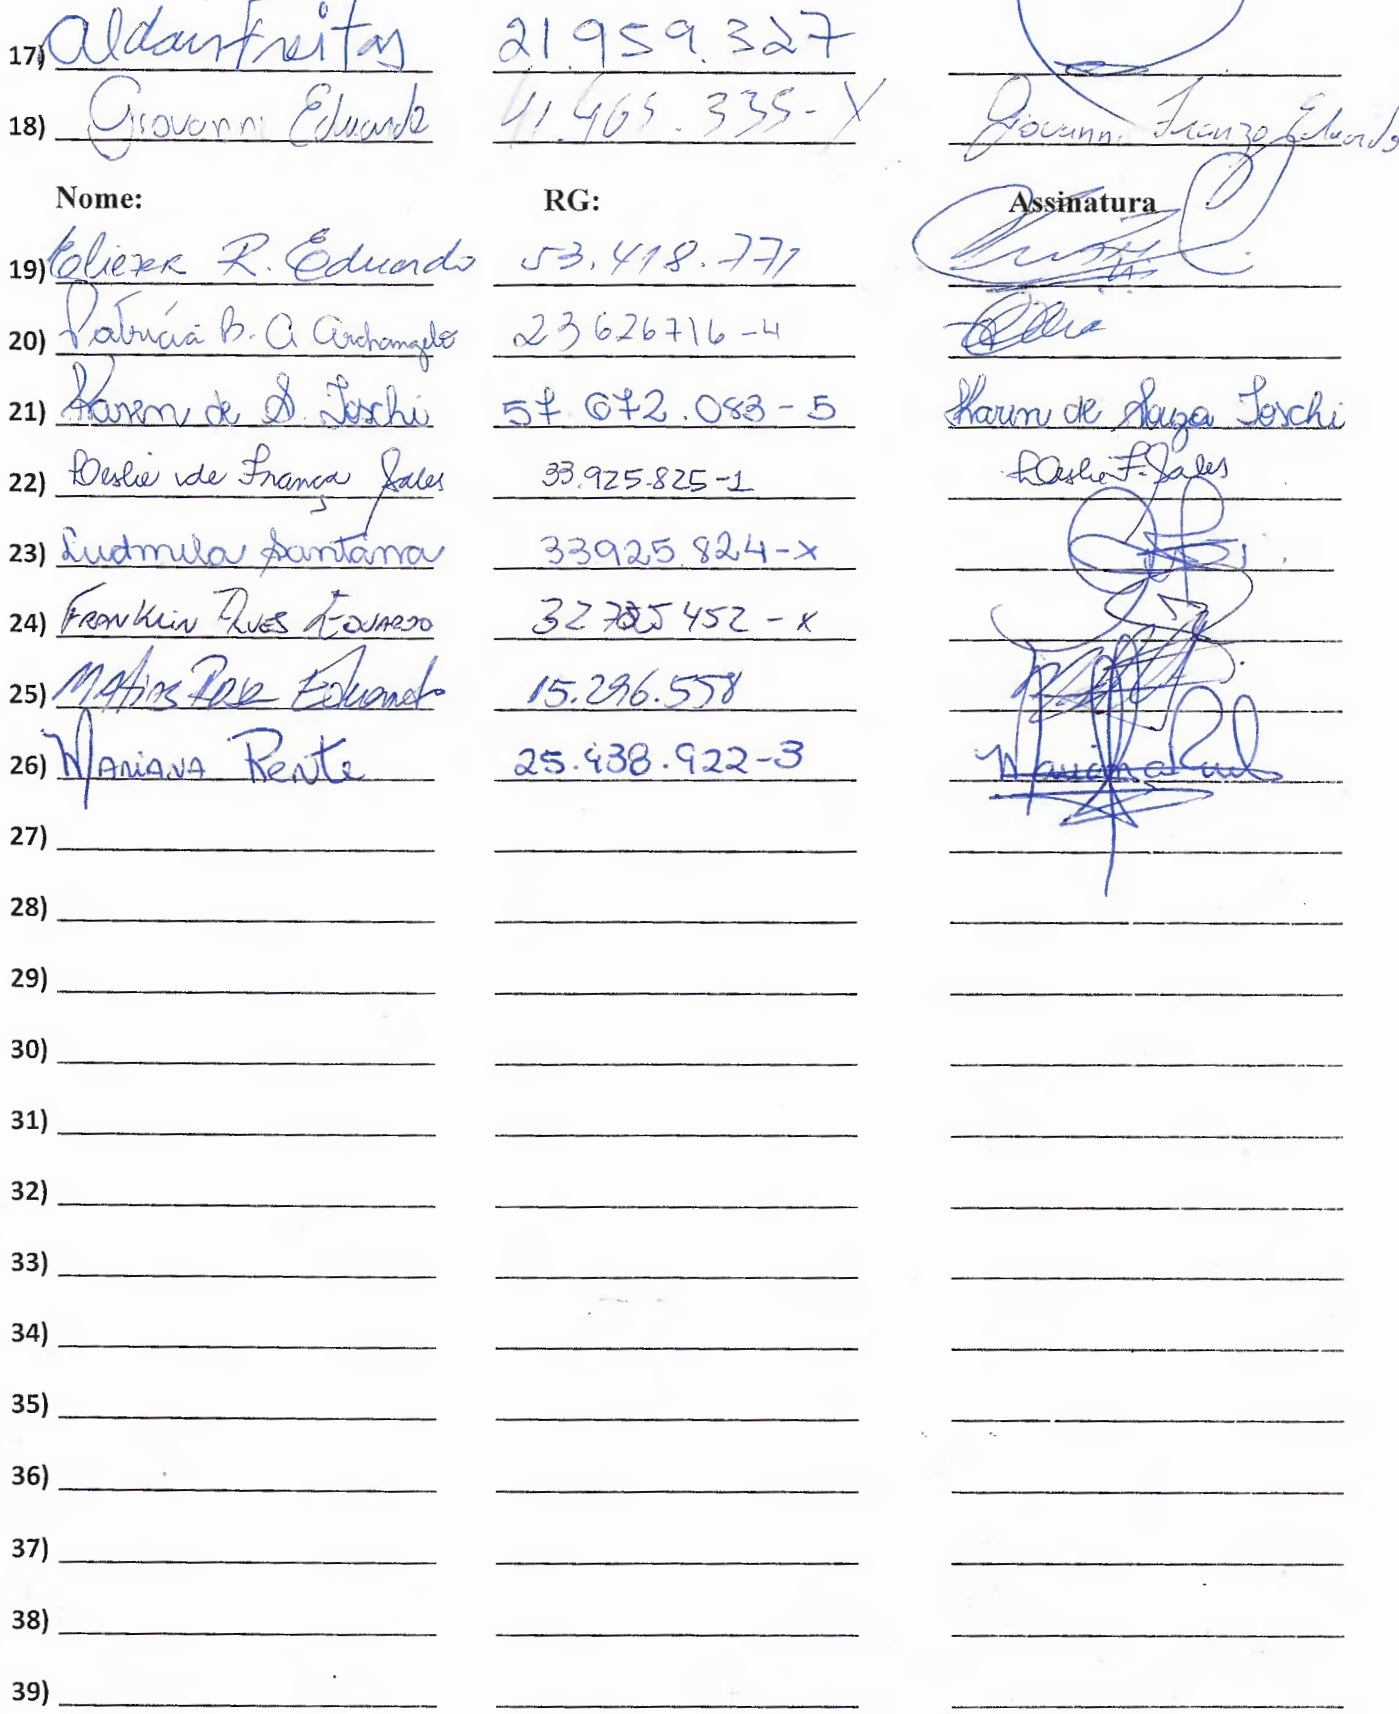 17) Aldair Freitas 21.959.327
18) Giovanni Eduardo 41.465.335-X Giovanni Franzo Eduardo
Nome: RG: Assinatura
19) Eliezer R. Eduardo 53.418.771
20) Patrícia B. A Archangelo 23626716-4
21) Karen de S. Toschi 57.672.083-5 Karen de Souza Toschi
22) Deslie de França Sales 33.925.825-1 Deslie F. Sales
23) Ludmila Santana 33925.824-x
24) FRANKLIN ALVES EDUARDO 452-x
25) Matias Eduardo 15.296.558
26) MARIANA Rente 25.438.922-3 Mariana
27)
28)
29)
30)
31)
32)
33)
34)
35)
36)
37)
38)
39)